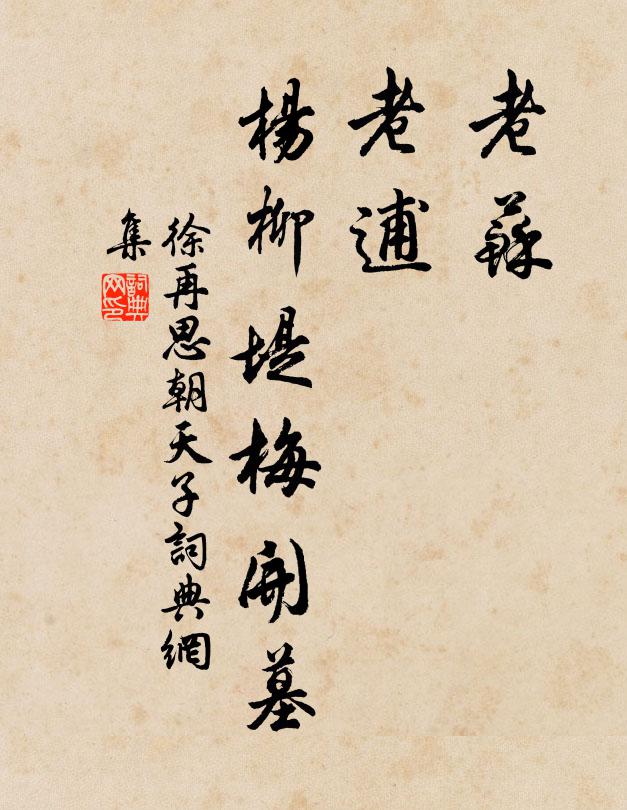 老蘇
老逋
楊柳堤梅開墓
徐再思朝天子詞典網
集
詞典
网印